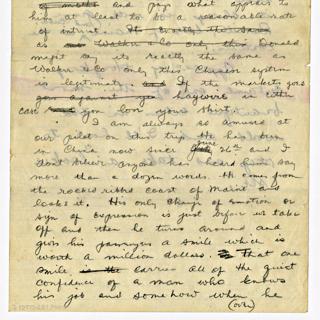 a month and pays what appears to
him at least to be a reasonable rate
of interest. It is really the same
as Walker & Co only this Donald
might say its really the same as
Walker & Co only this Chinese system
is legitimate. If the market goes
haywire in either
case you lose your shirt.
I am always so amused at
our pilot on this trip. He has been
in China now since June 26th and I
don't believe anyone has heard him say
more than a dozen words. He comes from
the rocked ribbed coast of Maine and
looks it. His only change of emotion or
sign of expression is just before we take
off and then he turns around and
gives his passengers a smile which is
worth a million dollars. That one
smile carries all of the quiet
confidence of a man who knows
his job and somehow when he
(over)